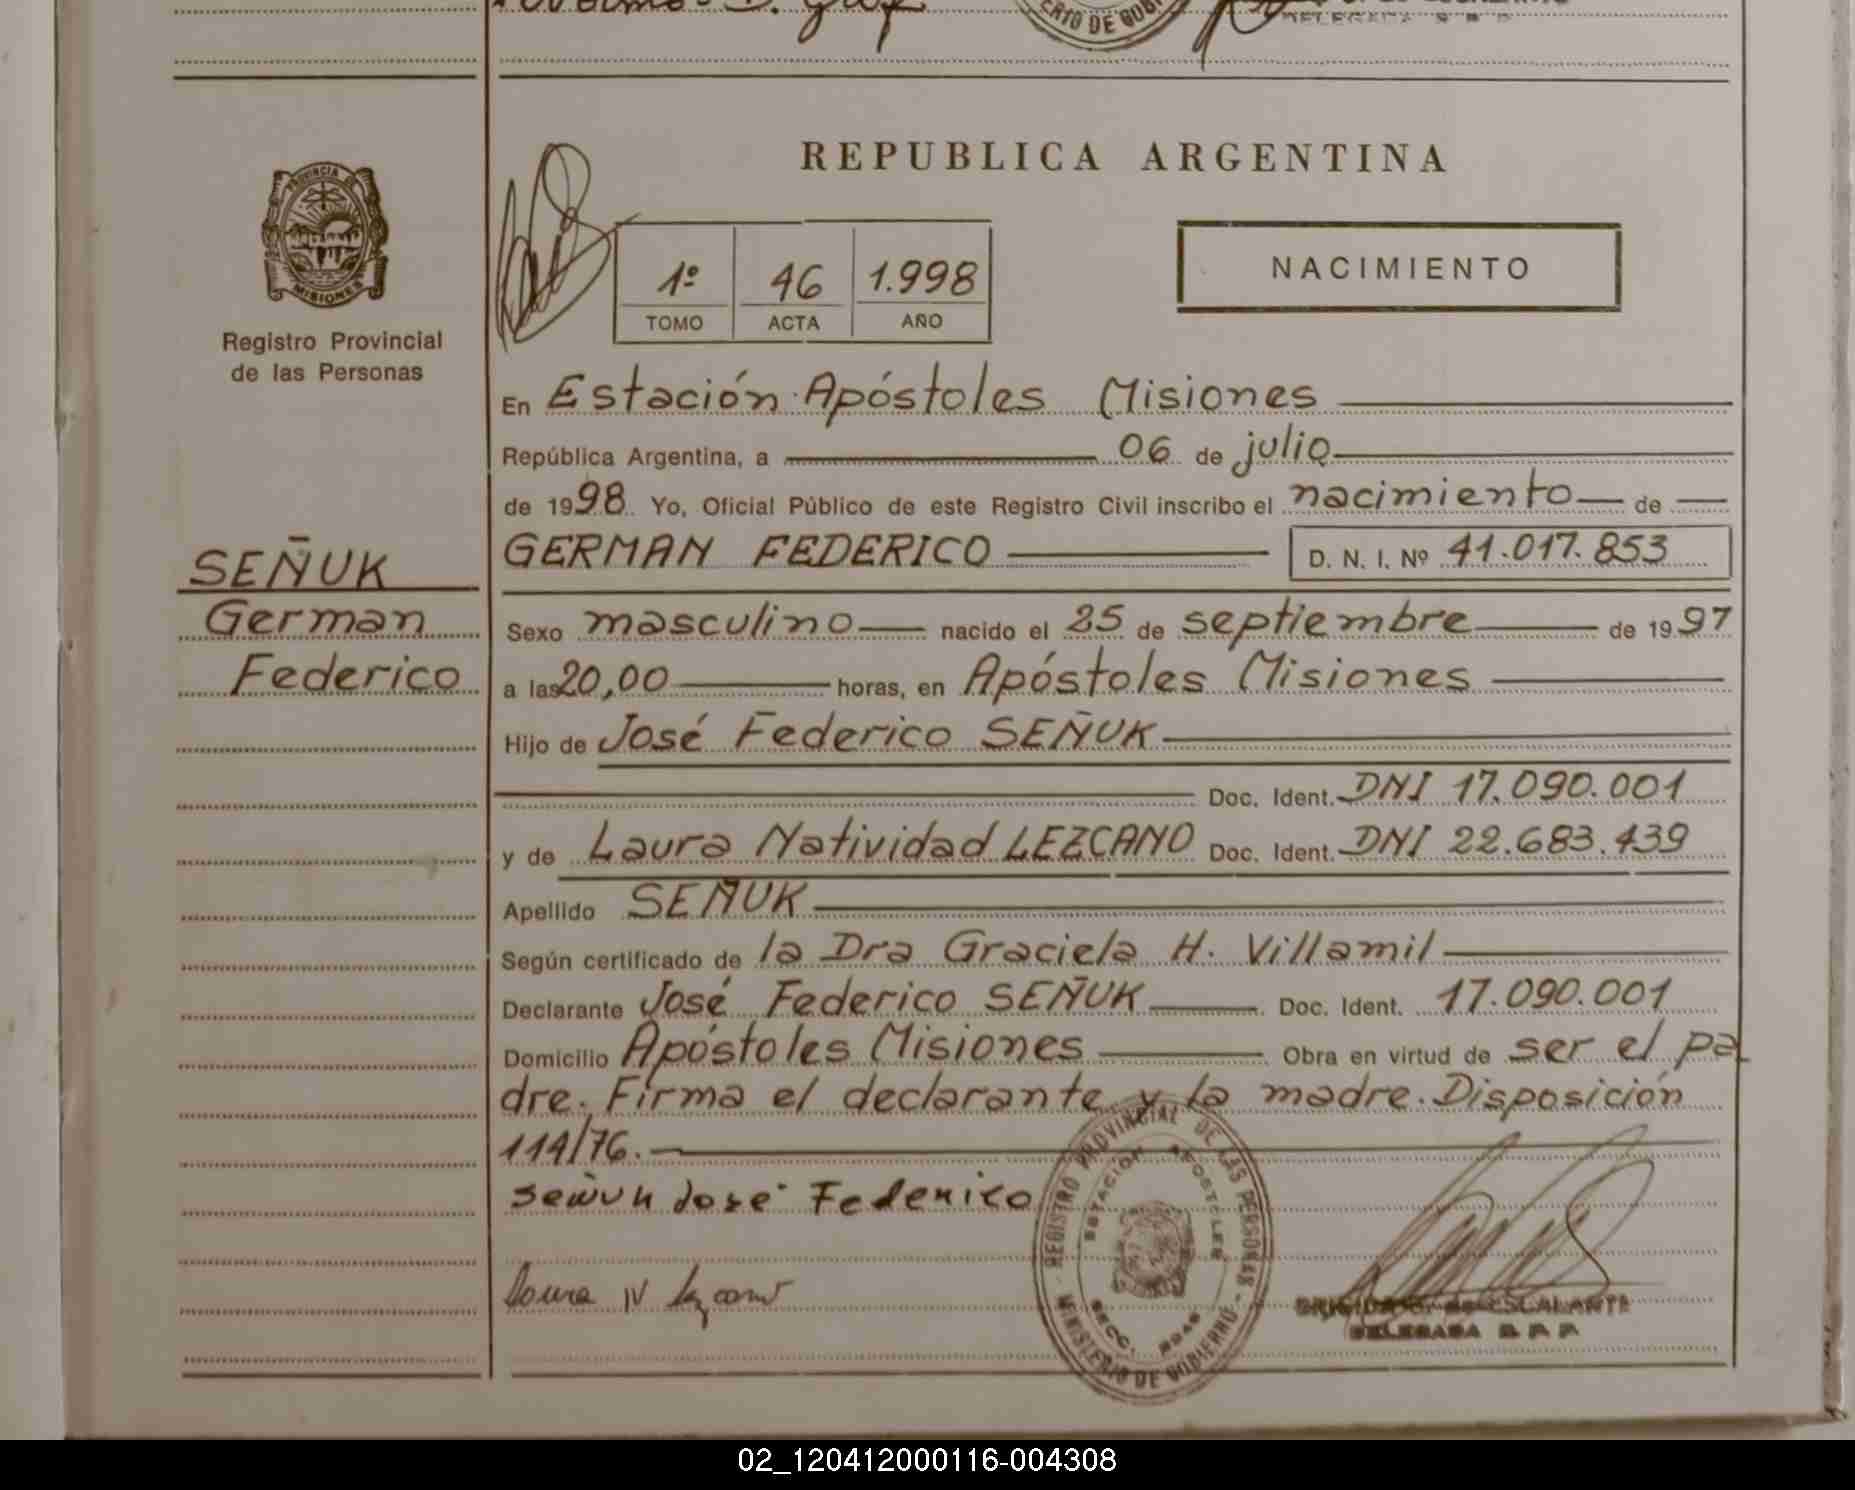 PROVINCIA DE
MISIONES
Registro Provincial
de las Personas
SEÑUK
German
Federico
REPUBLICA ARGENTINA
1º 46 1.998
TOMO ACTA AÑO
NACIMIENTO
En Estación Apóstoles Misiones
República Argentina, a 06 de julio
de 1998 Yo, Oficial Público de este Registro Civil inscribo el nacimiento de
GERMAN FEDERICO D. N. I. Nº 41.017.853
Sexo masculino nacido el 25 de septiembre de 1997
a las 20,00 horas, en Apóstoles Misiones
Hijo de José Federico SEÑUK
Doc. Ident. DNI 17.090.001
y de Laura Natividad LEZCANO Doc. Ident. DNI 22.683.439
Apellido SEÑUK
Según certificado de la Dra Graciela H. Villamil
Declarante José Federico SEÑUK Doc. Ident. 17.090.001
Domicilio Apóstoles Misiones Obra en virtud de ser el pa
dre. Firma el declarante y la madre. Disposición
114/76.
señuk José Federico
Laura N Lezcano
REGISTRO PROVINCIAL DE LAS PERSONAS - MINISTERIO DE GOBIERNO -
ESTACIÓN APOSTOLES
SECC.
de ESCALANTE
DELEGADA R. P. P.
02_120412000116-004308